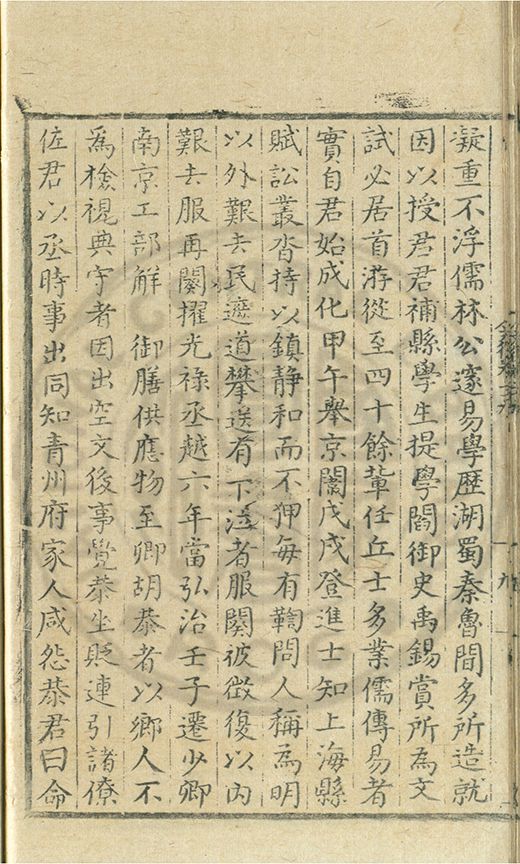 凝重不浮儒林公邃易學歷湖蜀秦魯間多所造就
因以授君君補縣學生提學閻御史禹錫賞所為文
試必居首游從至四十餘輩任丘士多業儒傳易者
實自君始成化甲午舉京闈戊戌登進士知上海縣
賦訟叢沓持以鎮静和而不狎毎有鞫問人稱為明
以外艱去民遮道攀送有下泣者服闋被徴復以内
艱去服再闋擢光祿丞越六年當弘治壬子遷少卿
南京工部解 御膳供應物至卿胡恭者以鄉人不
為檢視典守者因出空文後事覺恭坐貶連引諸僚
佐君以丞時事出同知青州府家人咸怨恭君曰命